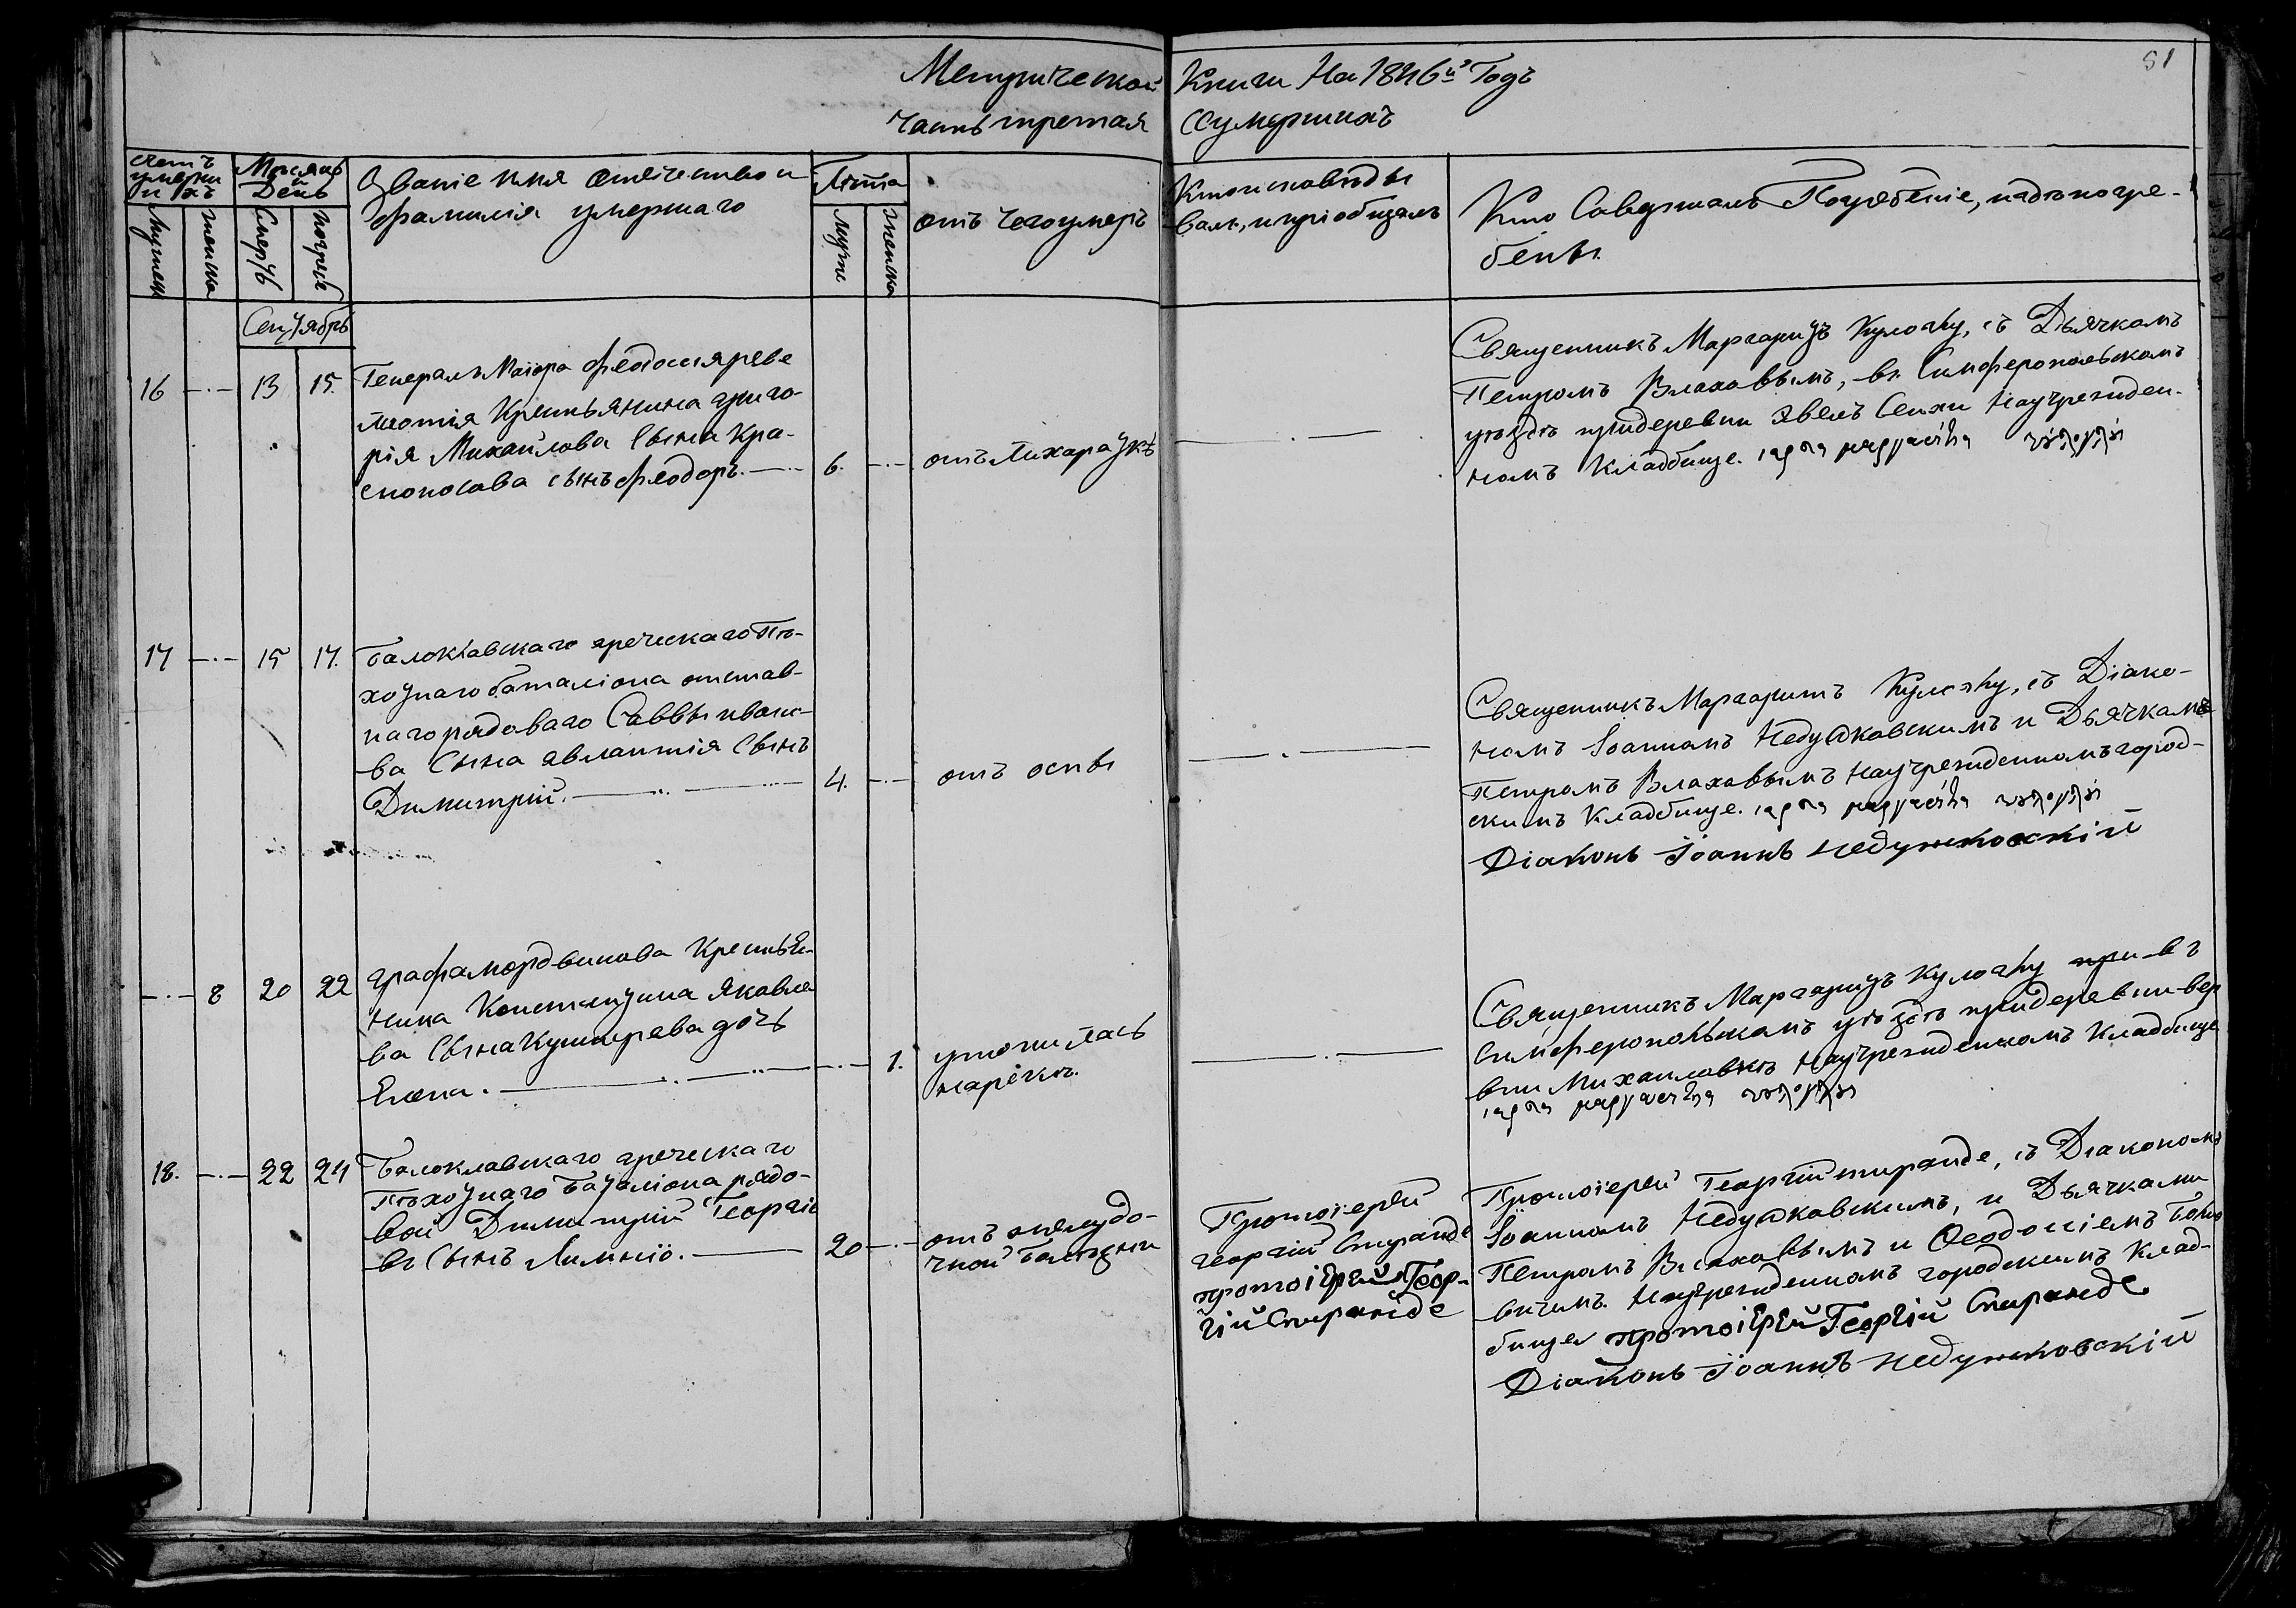 81
Метрической Книги На 1846й Годъ
часть третая О умершихъ
Счетъ умерши ихъ
Мужеск
женска
Месяцъ День
Смерть
погребе
Званіе имя отечество и
фамилія умершаго
Лѣта
Муже
женска
отъ чего умеръ
Кто исповѣды
валъ, и приобщалъ
Кто Совершалъ Погребеніе, и гдѣ погре-
бены.
Сентябрь
16 — 13 15.
Генералъ Маіора Феодосія реве
лиотія Крестьянина григо-
рія Михайлова Сына Кра-
сноносава сынъ феодоръ.
6. —
отъ Лихарадкѣ
Священникъ Маргаритъ Кулочку, съ Дьячкомъ
Петромъ Влаховымъ, въ Симферопольскомъ
уѣздѣ придеревни Явелъ Сеихи Научрежден-
номъ Кладбище.
17 — 15 17.
Балоклавскаго греческаго Пѣ-
хотнаго баталіона отстав-
наго рядоваго Саввы ивано-
ва Сына Явлантія Сынъ
Димитрій.
4. —
отъ оспы
Священникъ Маргаритъ Кулочку, съ Діако-
номъ Іоанномъ Недужковскимъ и Дьячкомъ
Петромъ Влаховымъ Научрежденномъ город-
скимъ Кладбище.
Діаконъ Іоаннъ Недужковскій
— 8 20 22
графа мордвинова Крестья-
нина Константина Яковле
ва Сына Кушнрева дочь
Елена.
— 1.
утопилась
нарѣкѣ.
Священникъ Маргаритъ Кулочку при въ
симферопольскомъ уѣздѣ придеревни вер
вни Михаиловкѣ Научрежденномъ Кладбище
18. — 22 24
Балоклавскаго греческаго
Пѣхотнаго Баталіона рядо-
вой Димитрій Георгіе
въ Сынъ Лимніо.
20 —
отъ желудо-
чной Болѣзни
Протоіерей
георгій Спиранде
протоіерей Геор-
гій Спиранде
Протоіерей Георгій спиранде, съ Діакономъ
Іоанномъ Недужковскимъ, и Дьячками
Петромъ Влаховымъ и Ѳеодосіемъ Бощо
вичемъ. Научрежденномъ городскимъ Клад-
бище протоіерей Георгій Спиранде
Діаконъ Іоаннъ Недужковскій